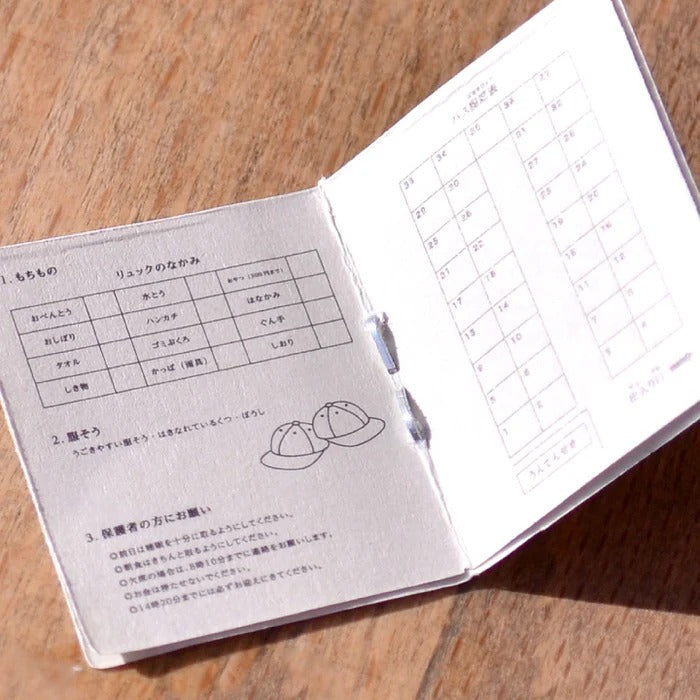 1. もちもの
リュックのなかみ
おべんとう 水とう おやつ（300円まで）
おしぼり ハンカチ はなかみ
タオル ゴミぶくろ ぐん手
しき物 かっぱ（雨具） しおり
2. 服そう
うごきやすい服そう・はきなれているくつ・ぼうし
3. 保護者の方にお願い
◎前日は睡眠を十分に取るようにしてください。
◎朝食はきちんと取るようにしてください。
◎欠席の場合は、8時10分までに連絡をお願いします。
◎お金は持たせないでください。
◎14時20分までには必ずお迎えにきてください。
バス座席表
33 34 35 36 37
29 30 31 32
25 26 27 28
21 22 23 24
17 18 19 20
13 14 15 16
9 10 11 12
5 6 7 8
1 2 3 4
うんてんせき
出入り口